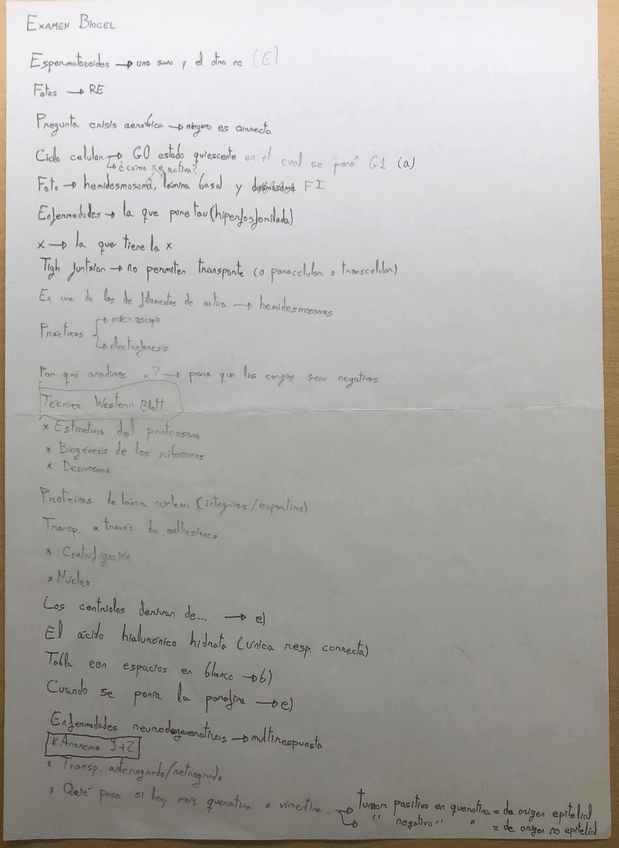 EXAMEN BIOCEL
Espermatozoides → uno sano y el otro no (E)
Fotos → RE
Pregunta crisis aeróbica → ninguna es correcta
Ciclo celular → G0 estado quiescente en el cual se "para" G1 (a)
↳ ¿cómo se activa?
Foto → hemidesmosoma, lámina basal y FI
Enfermedades → la que pone tau (hiperfosforilada)
x → la que tiene la x
Tigh juntxion → no permiten transporte (o paracelular o transcelular)
En una de las de filamentos de actina → hemidesmosomas
Prácticas → microscopio
↳ electroforesis
Por qué añadimos x? → para que las cargas sean negativas
Técnica Western Blott
* Estructura del proteosoma
* Biogénesis de los ribosomas
* Desmosoma
Proteínas de lámina nuclear (integrinas/exportina)
Transp. a través de adhesiones
* Centrifugación
* Núcleo
Los centriolos derivan de... → e)
El ácido hialurónico hidrata (única resp. correcta)
Tabla con espacios en blanco → b)
Cuando se ponía la parafina → e)
Enfermedades neurodegenerativas → multirespuesta
* Anaxemo 9+2
* Transp. anterogrado/retrogrado
* Qué pasa si hay más queratina o vimentina → tumor positivo en queratina = de origen epitelial
↳ " negativo " " = de origen no epitelial